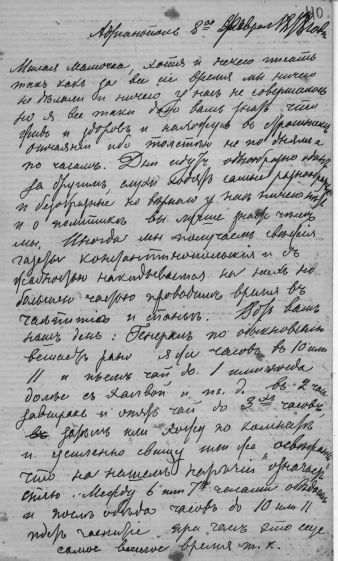 40
Адрианополь 8го Февраля 1878 года
Милая мамочка, хотя и нечего писать
так как за все это время мы ничего
не делали и ничего у нас не совершалось
но я все таки даю вам знать что
жив и здоров и нахожусь в страшном
отчаянии ибо толстею не по дням а
по часам. Дни идут однообразно один
за другим, слухи ходят самые разнообразные
и безобразные но верного у нас ничего нет
и о политике вы лучше знаете чем
мы. Иногда мы получаем свежия
газеты константинопольския и с
жадностью накидываемся на них но
большею частью проводим время в
чаепитии и спаньи. Вот вам
наш день: Генерал по обыкновению
встает рано я же часов в 10 или
11 и пьем чай до 1 иногда
дольше с халвой и т. д. в 2 часа
завтрак и опять чай до 3х часов,
затем или хожу по комнате
и усиленно свищу или же
что на нашем наречии означает
сплю. Между 6 или 7ю часами обедаем
и после обеда часов до 10 или 11
при чем это еще
самое веселое время т. к.